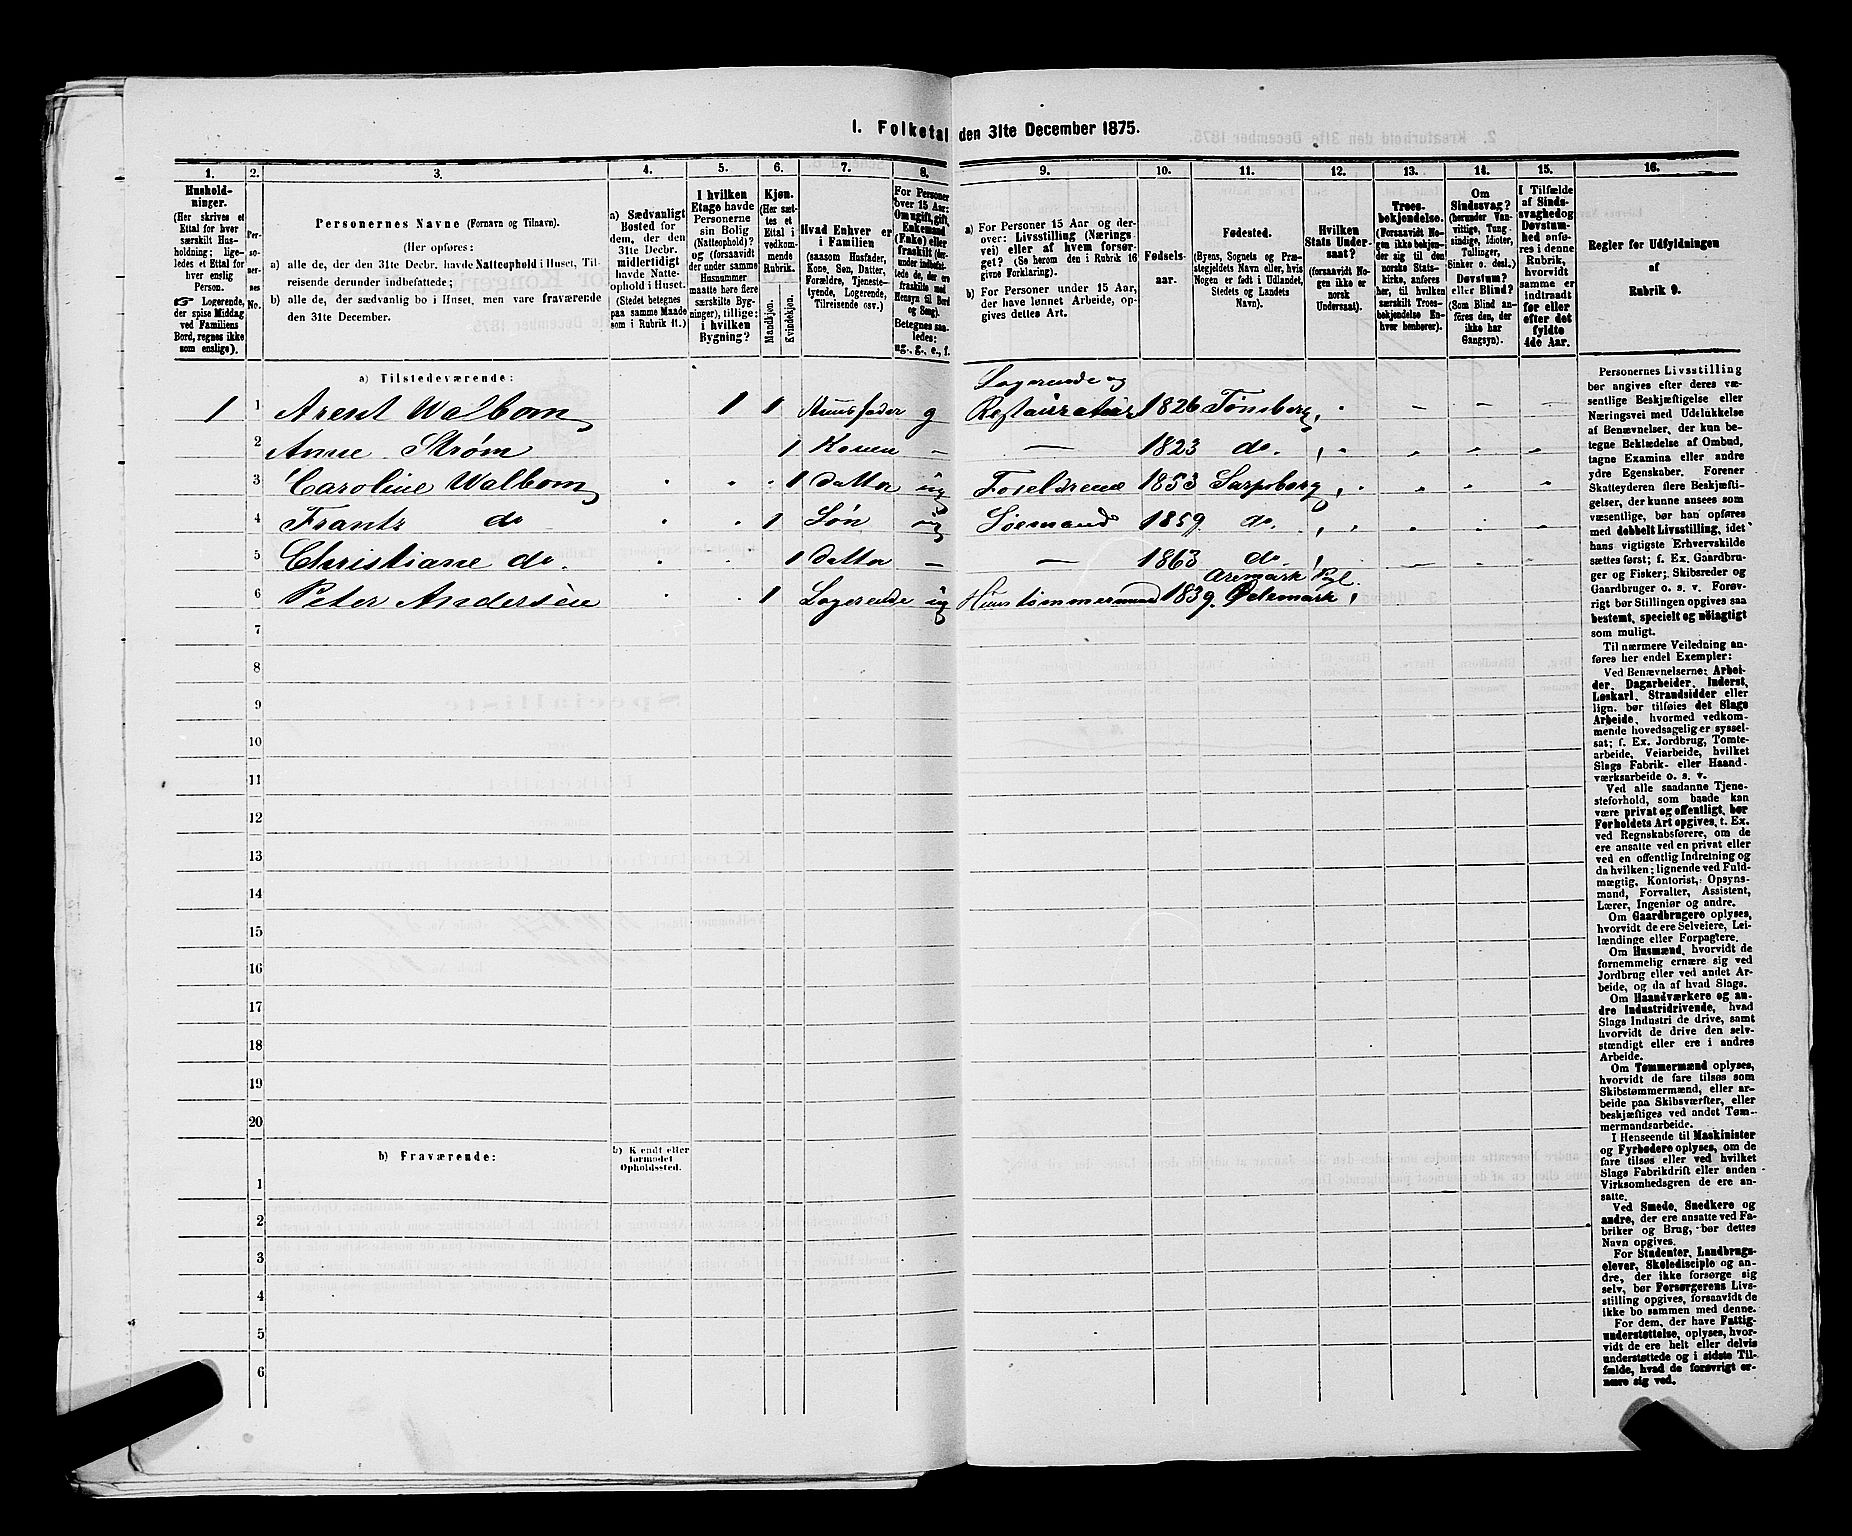 1. Folketal den 31te December 1875.
1. 2. 3. 4. 5. 6. 7. 8. 9. 10. 11. 12. 13. 14. 15. 16.
Hushold-
ninger.
(Her skrives et
Ettal for hver
særskilt Hus-
holdning; lige-
ledes et Ettal for
hver enslig
Person.
☞ Logerende,
der spise Middag
ved Familiens
Bord, regnes ikke
som enslige).
Per-
so-
ner-
nes
No.
Personernes Navne (Fornavn og Tilnavn).
(Her opføres:
a) alle de, der den 31te Decbr. havde Natteophold i Huset, Til-
reisende derunder indbefattede;
b) alle de, der sædvanlig bo i Huset, men vare fraværende
den 31te December.
a) Sædvanligt
Bosted for
dem, der den
31te Decbr.
midlertidigt
havde Natte-
ophold i Huset.
(Stedet betegnes
paa samme Maade
som i Rubrik 11.)
I hvilken
Etage havde
Personerne
sin Bolig
(Natteophold)?
og (forsaavidt
der under samme
Husnummer
maatte høre flere
særskilte Byg-
ninger), tillige:
i hvilken
Bygning?
Kjøn.
(Her sæt-
tes et
Ettal i
vedkom-
mende
Rubrik.
Mandkjøn.
Kvindekjøn.
Hvad Enhver er
i Familien
(saasom Husfader,
Kone, Søn, Datter,
Forældre, Tjeneste-
tyende, Logerende,
Tilreisende osv.)
For Personer
over 15 Aar:
Om ugift, gift,
Enkemand
(Enke) eller
fraskilt (her-
under indbefat-
tede de, der ere
fraskilte med
Hensyn til Bord
og Seng).
Betegnes saa-
ledes:
ug., g., e., f.
a) For Personer 15 Aar og der-
over: Livsstilling (Nærings
vei) eller af hvem forsør-
get? (Se herom den i Rubrik 16
givne Forklaring).
b) For Personer under 15 Aar,
der have lønnet Arbeide, op-
gives dettes Art.
Fødsels-
aar.
Fødested.
(Byens, Sognets og Præ-
stegjeldets Navn eller, hvis
Nogen er født i Udlandet,
Stedets og Landets
Navn).
Hvilken
Stats Under-
saat?
(forsaavidt No-
gen ikke er
norsk
Undersaat).
Troes-
bekjendelse.
(Forsaavidt No-
gen ikke bekjen-
der sig til den
norske Stats-
kirke, anføres
her, til hvilken
særskilt Troes-
bekjendelse En-
hver henhører).
Om
Sindssvag?
(herunder Van-
vittige, Tung-
sindige, Idioter,
Tullinger,
Sinker o. desl.)
Døvstum?
eller Blind?
(Som Blind an-
føres den, der
ikke har
Gangsyn).
I Tilfælde
af Sinds-
svaghed og
Døvstum-
hed anfø-
res i denne
Rubrik,
hvorvidt
samme er
indtraadt
før eller
efter det
fyldte
4de Aar.
Regler for Udfyldningen
af
Rubrik 9.
a) Tilstedeværende:
Logerende og
1 1 Arent Walbom 1 1 Huusfader g Restauratør 1826 Tønsberg
2 Anne Strøm 1 Konen — — 1823 do.
3 Caroline Walbom 1 Datter ug Foreldrene 1853 Sarpsborg
4 Frantz do 1 Søn ug Søemand 1859 do.
5 Christiane do. 1 Datter — — 1863 do.
Aremark Pgl.
6 Peter Andersen 1 Logerende ug Huustømmermand 1839. Ødemark
7
8
9
10
11
12
13
14
15
16
17
18
19
20
b) Fraværende:
b) Kjendt eller
formodet
Opholdssted.
1
2
3
4
5
6
Personernes Livsstilling
bør angives efter deres væ-
sentlige Beskjæftigelse eller
Næringsvei med Udelukkelse
af Benævnelser, der kun be-
tegne Beklædelse af Ombud,
tagne Examina eller andre
ydre Egenskaber. Forener
Skatteyderen flere Beskjæfti-
gelser, der kunne ansees som
væsentlige, bør han opføres
med dobbelt Livsstilling, idet
hans vigtigste Erhvervskilde
sættes først; f. Ex. Gaardbru-
ger og Fisker; Skibsreder og
Gaardbruger o. s. v. Forøv-
rigt bør Stillingen opgives saa
bestemt, specielt og nøiagtigt
som muligt.
Til nærmere Veiledning an-
føres her endel Exempler:
Ved Benævnelserne: Arbei-
der, Dagarbeider, Inderst,
Løskarl, Strandsidder eller
lign. bør tilføies det Slags
Arbeide, hvormed vedkom-
mende hovedsagelig er syssel-
sat; f. Ex. Jordbrug, Tomte-
arbeide, Veiarbeide, hvilket
Slags Fabrik- eller Haand-
værksarbeide o. s. v.
Ved alle saadanne Tjene-
steforhold, som baade kan
være privat og offentligt, bør
Forholdets Art opgives, t. Ex.
ved Regnskabsførere, om de
ere ansatte ved en privat eller
ved en offentlig Indretning og
da hvilken; lignende ved Fuld-
mægtig, Kontorist, Opsyns-
mand, Forvalter, Assistent,
Lærer, Ingeniør og andre.
Om Gaardbrugere oplyses,
hvorvidt de ere Selveiere, Lei-
lændinge eller Forpagtere.
Om Husmænd, hvorvidt de
fornemmelig ernære sig ved
Jordbrug eller ved andet Ar-
beide, og da af hvad Slags.
Om Haandværkere og an-
dre Industridrivende, hvad
Slags Industri de drive, samt
hvorvidt de drive den selv-
stændigt eller ere i andres
Arbeide.
Om Tømmermænd oplyses,
hvorvidt de fare tilsøs som
Skibstømmermænd, eller ar-
beide paa Skibsværfter, eller
beskjæftiges ved andet Tøm-
mermandsarbeide.
I Henseende til Maskinister
og Fyrbødere oplyses, om de
fare tilsøs eller ved hvilket
Slags Fabrikdrift eller anden
Virksomhedsgren de ere an-
satte.
Ved Smede, Snedkere og
andre, der ere ansatte ved Fa-
briker og Brug, bør dettes
Navn opgives.
For Studenter, Landbrugs-
elever, Skoledisciple og an-
dre, der ikke forsørge sig
selv, bør Forsørgerens Livs-
stilling opgives, forsaavidt de
ikke bo sammen med denne.
For dem, der have Fattig-
understøttelse, oplyses, hvor-
vidt de ere helt eller delvis
understøttede og i sidste Til-
fælde, hvad de forøvrigt er-
nære sig ved.